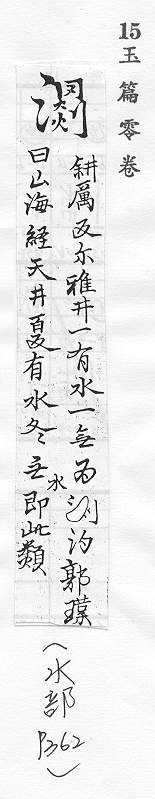 15玉篇零卷
瀱
耕厲反尔雅井一有水一无为瀱汋郭璞
曰山海経天井夏有水冬无水即此類
(水部P362)